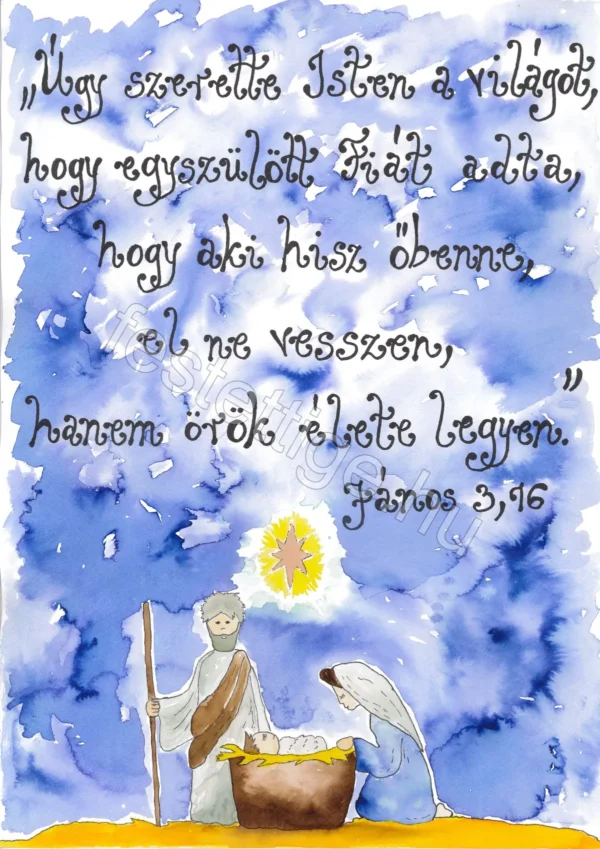 „Úgy szerette Isten a világot,
hogy egyszülött Fiát adta,
hogy aki hisz őbenne,
el ne vesszen,
hanem örök élete legyen.”
János 3,16
festettige.hu